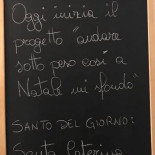 Oggi inizia il
progetto "andare
sotto peso così a
Natale mi sfondo"
SANTO DEL GIORNO:
Santa Caterina